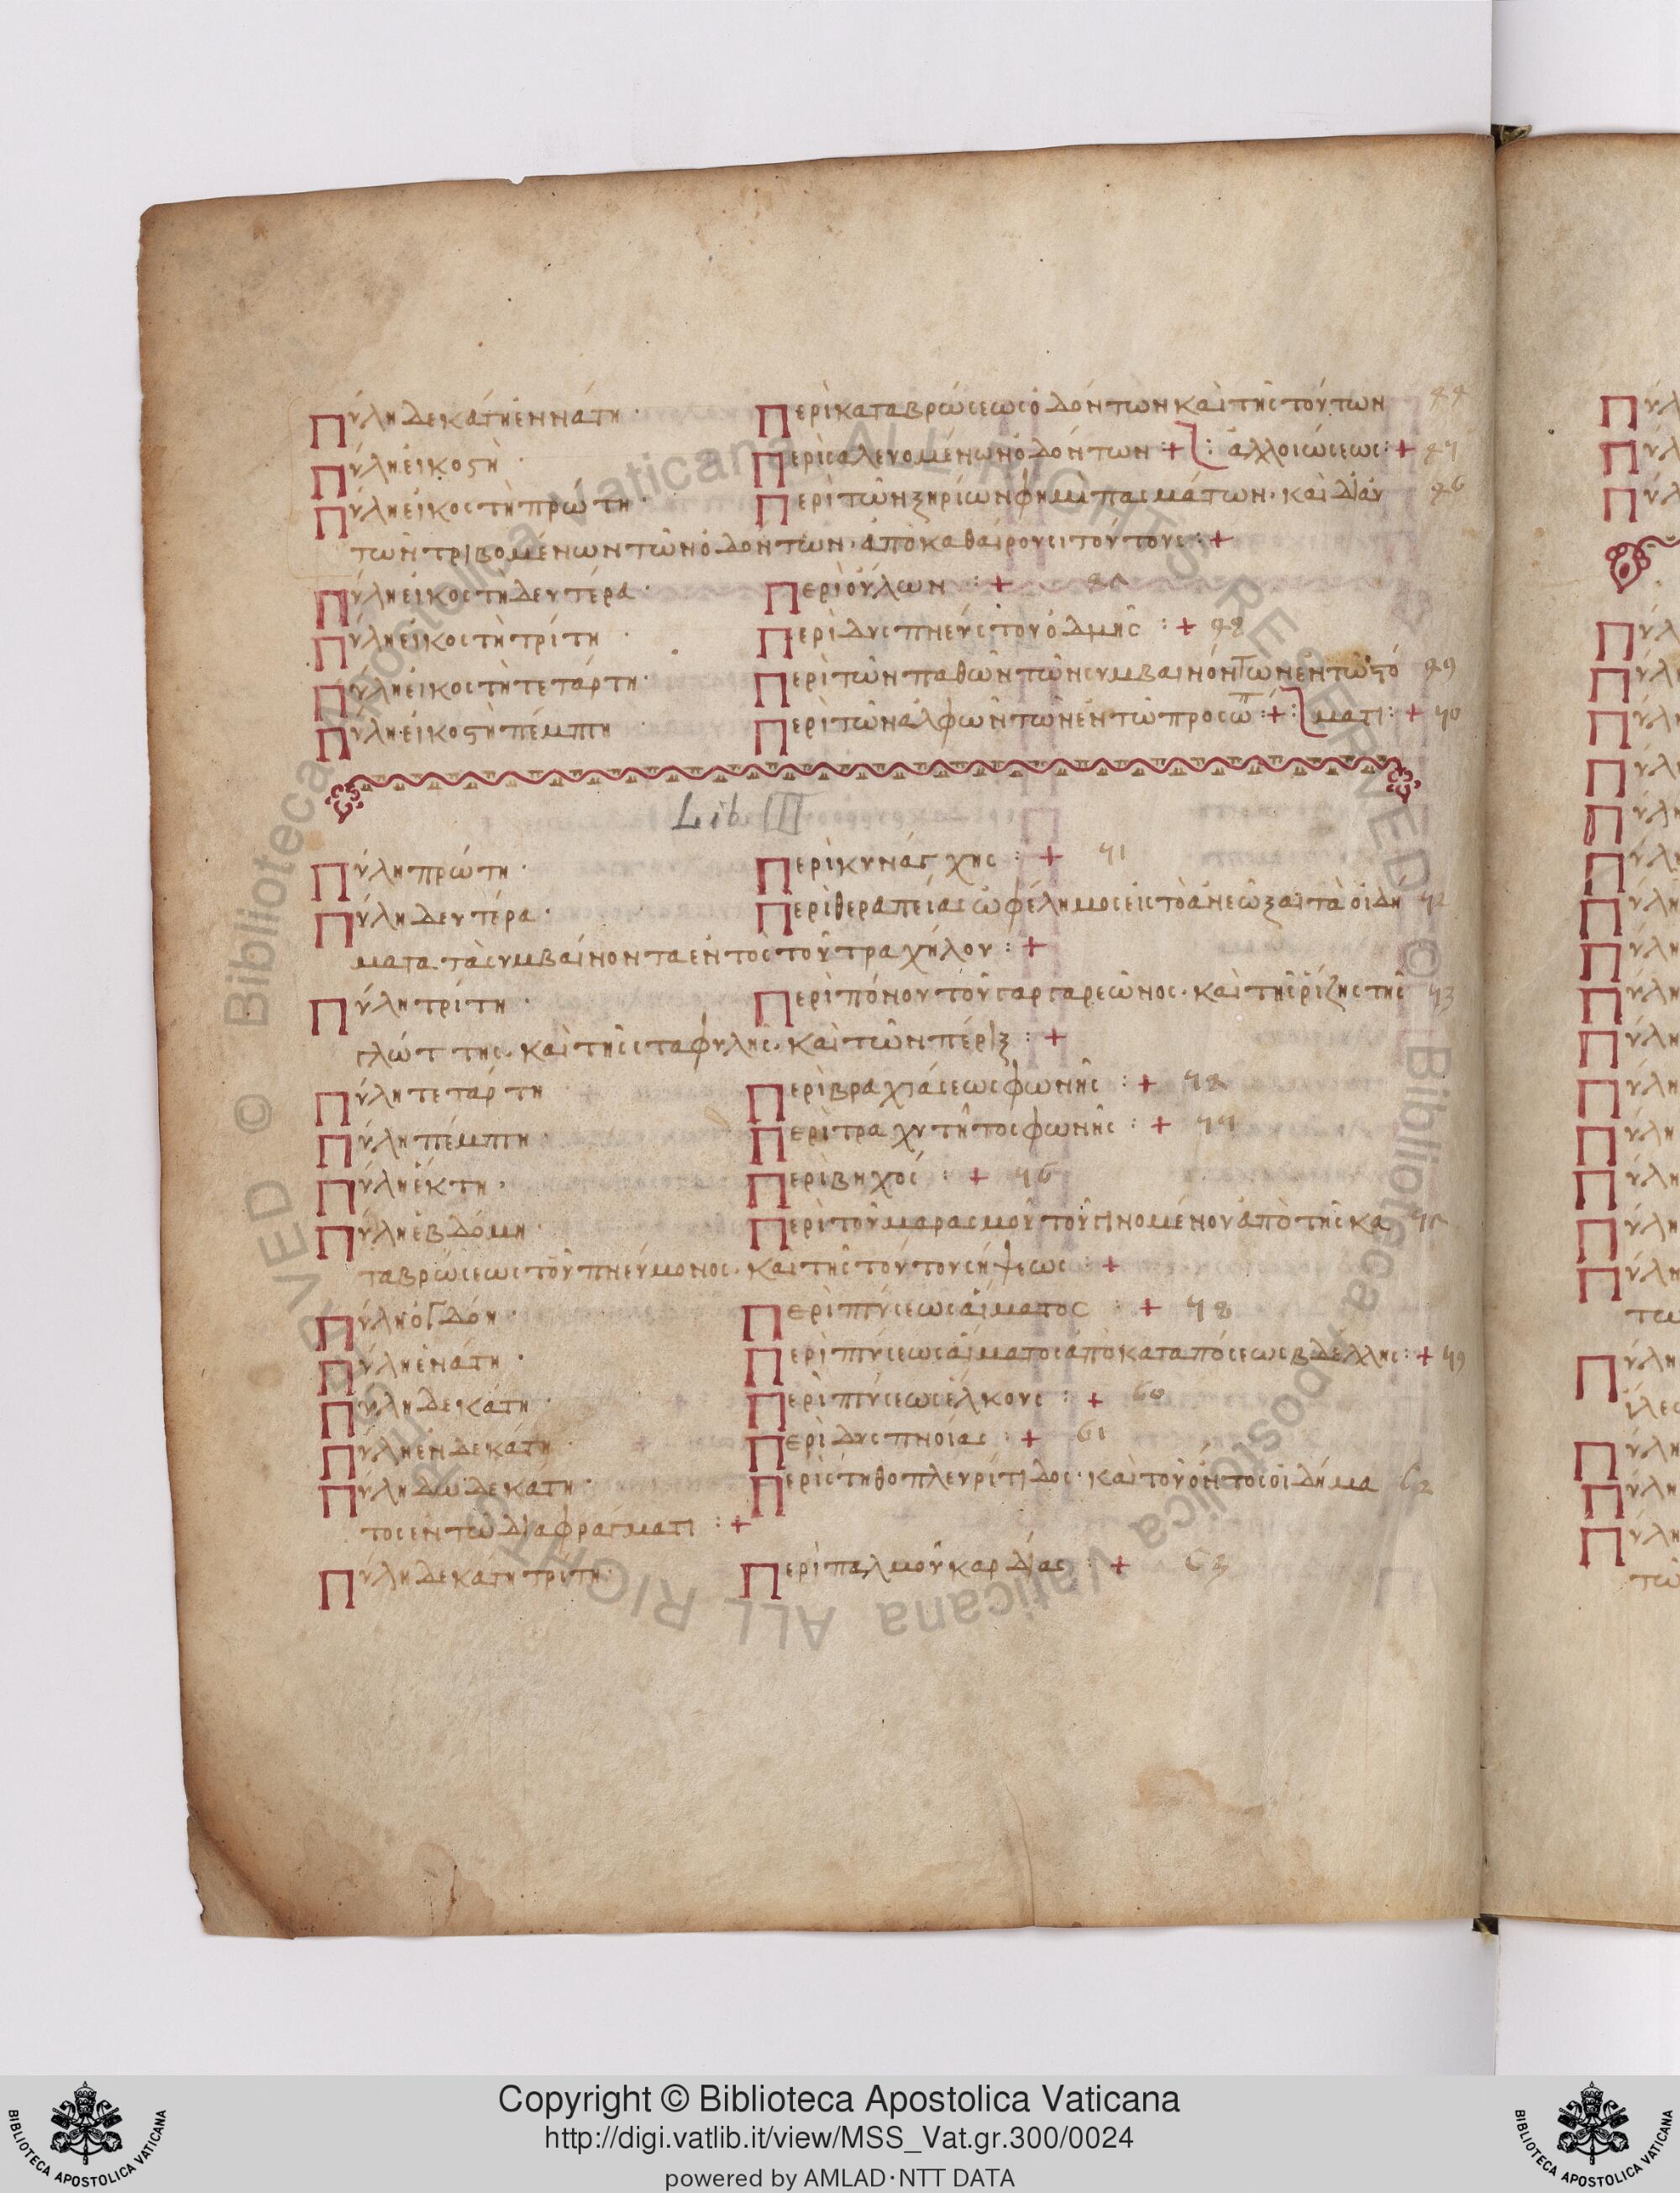 Πύλη δεκάτη ἐννάτη· Περὶ καταβρώσεως ὀδόντων καὶ τῆς τούτων 44
Πύλη εἰκοϛὴ· Περὶ σαλευομένων ὀδόντων :+ : ἀλλοιώσεως :+ 45
Πύλη εἰκοστὴ πρώτη· Περὶ τῶν ξηρίων φημὶ πασμάτων· καὶ δι' ἀυ 46
τῶν τριβομένων τῶν ὀδόντων· ἀποκαθαίρουσι τούτους :+
Πύλη εἰκοστὴ δευτέρα· Περὶ οὔλων :+ 47
Πύλη εἰκοστὴ τρίτη· Περὶ δυσπνεύστου ὀδμῆς :+ 48
Πύλη εἰκοστὴ τετάρτη· Περὶ τῶν παθῶν τῶν συμβαινόντων ἐν τῶ στό 49
Πύλη εἰκοϛὴ πέμπτη· Περὶ τῶν ἀλφῶν τῶν ἐν τῶ προσώπ :+ : ματι :+ 50
Lib III
Πύλη πρώτη· Περὶ κυνάγχης :+ 51
Πύλη δευτέρα· Περὶ θεραπείας ὠφέλημος εἰς τὸ ἀνεῶξαι τὰ οἰδή 52
ματα τὰ συμβαίνοντα ἐντὸς τοῦ τραχήλου :+
Πύλη τρίτη· Περὶ πόνου τοῦ γαργαρεῶνος· καὶ τῆς ρίζης τῆς 53
γλώττης· καὶ τῆς σταφυλῆς· καὶ τῶν πέριξ :+
Πύλη τετάρτη Περὶ βραχιάσεως φωνῆς :+ 54
Πύλη πέμπτη· Περὶ τραχυτῆτος φωνῆς :+ 55
Πύλη ἕκτη· Περὶ βηχος :+ 56
Πύλη ἑβδόμη· Περὶ τοῦ μαρασμοῦ τοῦ γινομένου ἀπὸ τῆς κα 57
ταβρώσεως τοῦ πνεύμονος· καὶ τῆς τούτου σήψεως :+
Πύλη ὀγδόη· Περὶ πτύσεως αἵματος :+ 58
Πύλη ἐνάτη· Περὶ πτύσεως αἵματος ἀπὸ καταπόσεως βδέλλης :+ 59
Πύλη δεκάτη· Περὶ πτύσεως ἕλκους :+ 60
Πύλη ἑνδεκάτη· Περὶ δυσπνοίας :+ 61
Πύλη δωδεκάτη· Περὶ στηθοπλευρίτιδος· καὶ τοῦ ὄντος οἰδήμα 62
τος ἐν τῶ διαφράγματι :+
Πύλη δεκάτη τρίτη· Περὶ παλμοῦ καρδίας :+ 63
Copyright © Biblioteca Apostolica Vaticana
http://digi.vatlib.it/view/MSS_Vat.gr.300/0024
powered by AMLAD·NTT DATA
BIBLIOTECA APOSTOLICA VATICANA
BIBLIOTECA APOSTOLICA VATICANA